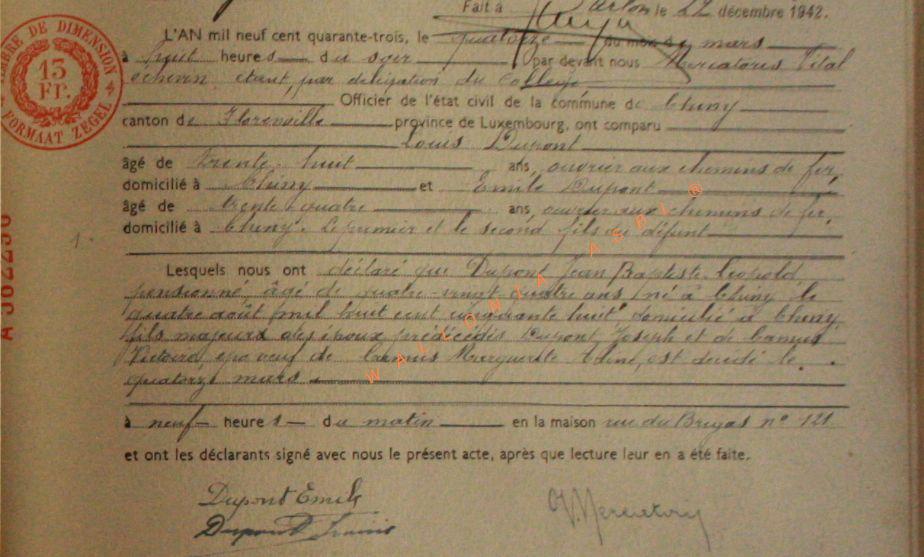 Fait à Arlon le 22 décembre 1942.
L'AN mil neuf cent quarante-trois, le quatorze du mois de mars
à huit heures du soir par devant nous Mercatoris Vital
échevin étant, par délégation du Collège
Officier de l'état civil de la commune de Chiny
canton de Florenville province de Luxembourg, ont comparu
Louis Dupont
âgé de trente-huit ans, ouvrier aux chemins de fer,
domicilié à Chiny et Emile Dupont
âgé de trente-quatre ans, ouvrier aux chemins de fer,
domicilié à Chiny. Le premier et le second fils du défunt
Lesquels nous ont déclaré que Dupont Jean Baptiste Léopold
pensionné âgé de quatre-vingt quatre ans, né à Chiny le
quatre août mil huit cent cinquante huit domicilié à Chiny,
fils majeur des époux prédécédés Dupont Joseph et de Camus
Victoire, veuf de Camus Marguerite, est décédé le
quatorze mars
à neuf heures du matin en la maison rue du n° 121
et ont les déclarants signé avec nous le présent acte, après que lecture leur en a été faite.
Dupont Emile
Dupont Louis
V. Mercatoris
TIMBRE DE DIMENSION
13
FR.
FORMAAT ZEGEL
A 562290
1.
WALLONIA ASBL ®